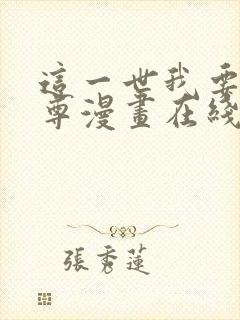 這一世我要
尊漫畫在綫
張秀蓮